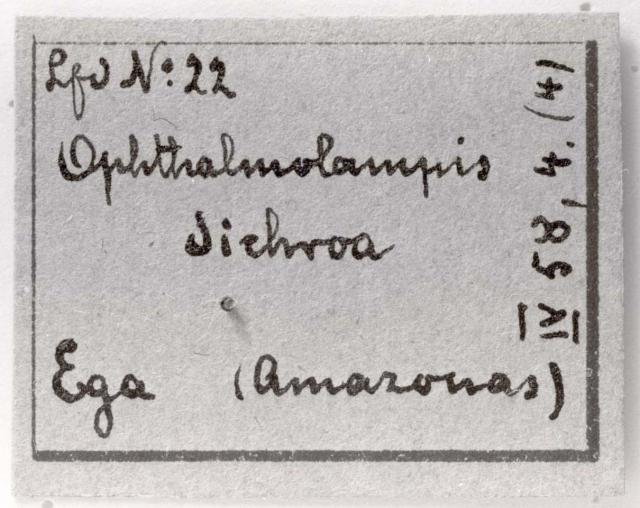 Lfd No: 22
Ophthalmolampis
dichroa
Ega (Amazonas)
IV 58, 4. (4)